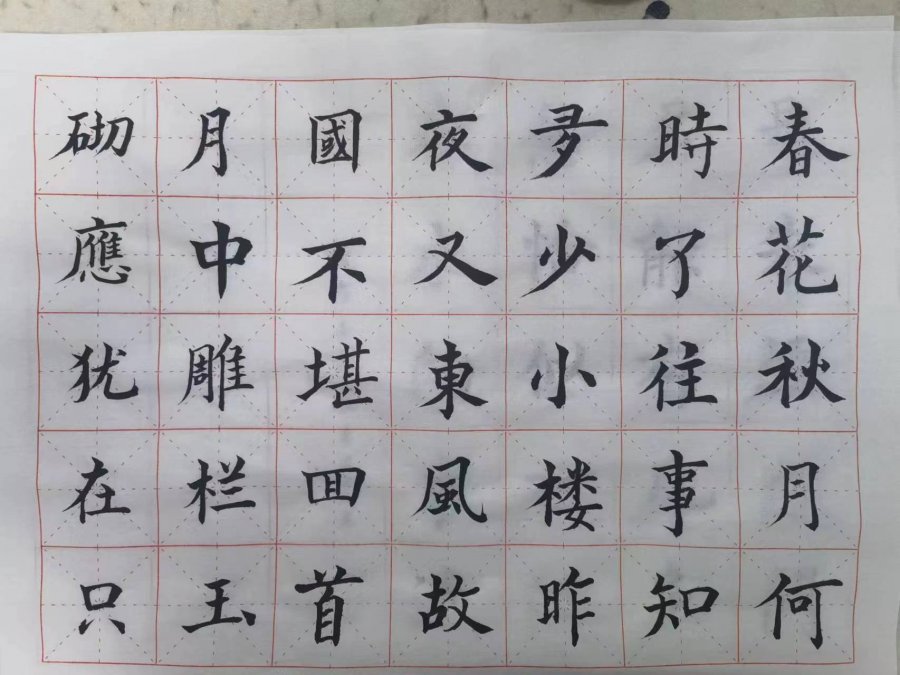 春花秋月何
時了往事知
夛少小楼昨
夜又東風故
國不堪囬首
月中雕栏玉
砌應犹在只